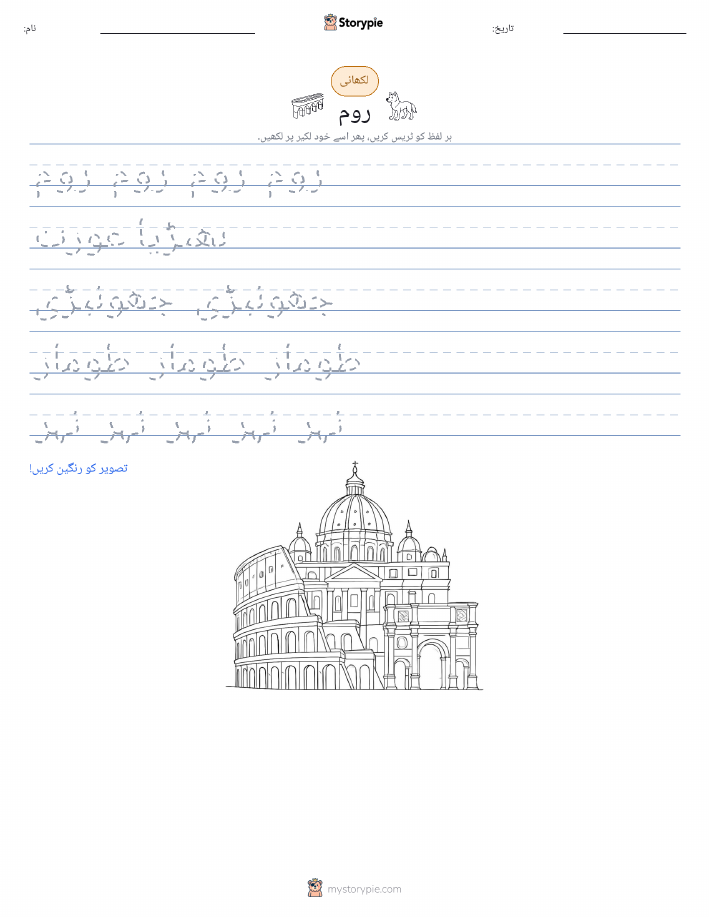 نام: Storypie تاریخ:
لکھائی
روم
ہر لفظ کو ٹریس کریں، پھر اسے خود لکیر پر لکھیں۔
روم روم روم روم
بھیڑیا عورت
جھونپڑی جھونپڑی
طومار طومار طومار
نہر نہر نہر نہر نہر
تصویر کو رنگین کریں!
mystorypie.com